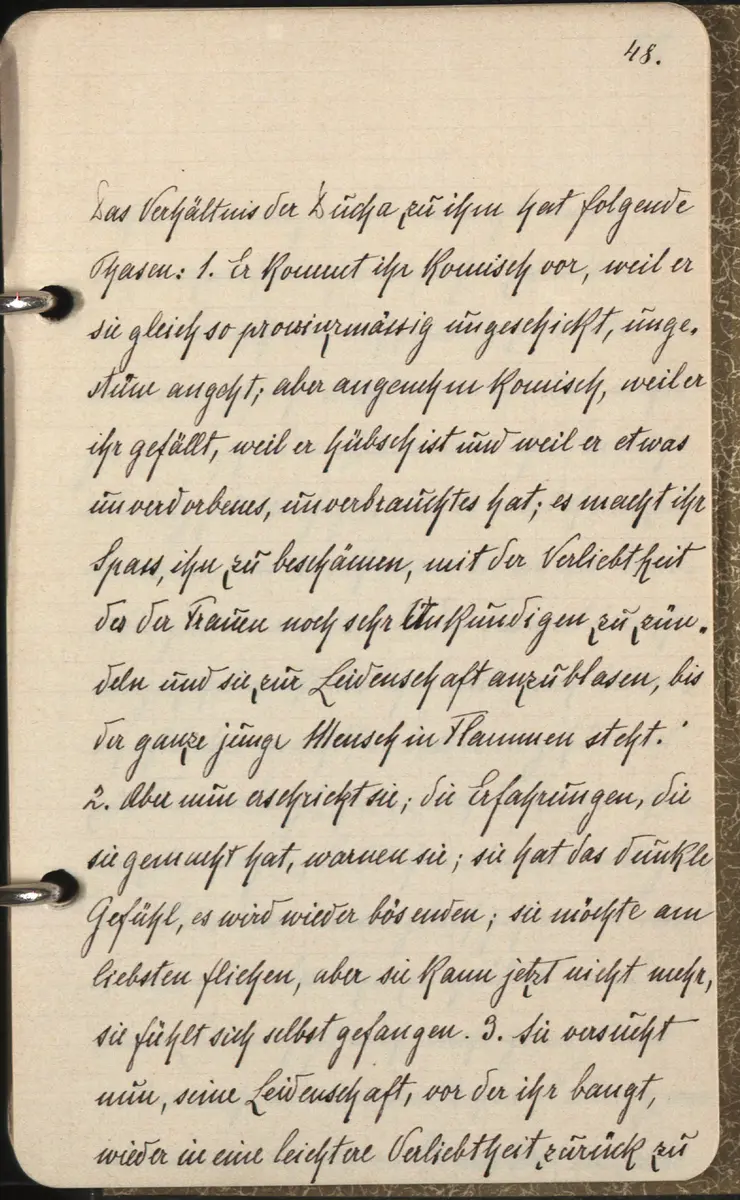 48.
Das Verhältnis der Ducha zu ihm hat folgende
Phasen: 1. Er kommt ihr komisch vor, weil er
sie gleich so provinzmässig ungeschickt, unge-
stüm angeht; aber angenehm komisch, weil er
ihr gefällt, weil er hübsch ist und weil er etwas
unverdorbenes, unverbrauchtes hat; es macht ihr
Spass, ihn zu beschämen, mit der Verliebtheit
des der Frauen noch sehr Unkundigen zu zün-
deln und sie zur Leidenschaft anzublasen, bis
der ganze junge Mensch in Flammen steht.
2. Aber nun erschrickt sie; die Erfahrungen, die
sie gemacht hat, warnen sie; sie hat das dunkle
Gefühl, es wird wieder bös enden; sie möchte am
liebsten fliehen, aber sie kann jetzt nicht mehr,
sie fühlt sich selbst gefangen. 3. Sie versucht
nun, seine Leidenschaft, vor der ihr bangt,
wieder in eine leichtere Verliebtheit zurück zu